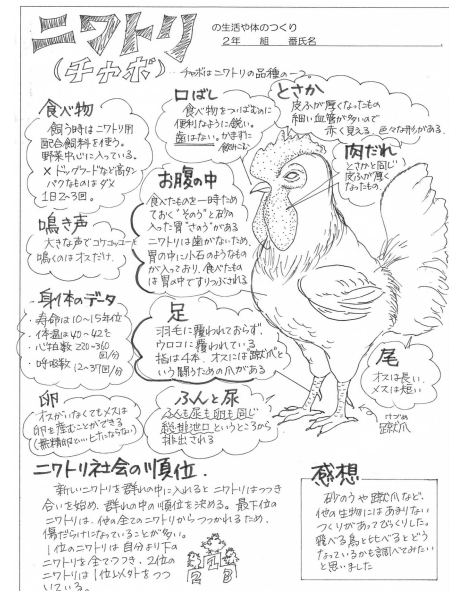 ニワトリ の生活や体のつくり
2年 組 番氏名
(チャボ) チャボはニワトリの品種の一つ。
食べ物
飼う時はニワトリ用
配合飼料を使う。
野菜中心に入っている。
×ドッグフードなど高タン
パクなものはダメ
1日2~3回。
鳴き声
大きな声でコケコッコーと
鳴くのはオスだけ.
身体のデータ
・寿命は10~15年位
・体温は40~42℃
・心拍数 220~360
回/分
・呼吸数 12~37回/分
卵
オスがいなくてもメスは
卵を産むことができる
(無精卵といいヒナにならない)
口ばし
食べ物をついばむのに
便利なように鋭い。
歯はない。かまずに
飲みこむ
お腹の中
食べたものを一時ため
ておく“そのう”と砂の
入った胃“さのう”がある
ニワトリは歯がないため、
胃の中に小石のようなもの
が入っており、食べたもの
は胃の中ですりつぶされる
足
羽毛に覆われておらず、
ウロコに覆われている
指は4本。オスには蹴爪と
いう闘うための爪がある
ふんと尿
ふんも尿も卵も同じ
総排泄口というところから
排出される
とさか
皮ふが厚くなったもの
細い血管が多いので
赤く見える。色々な形がある.
肉だれ
とさかと同じ
皮ふが厚く
なったもの.
尾
オスは長い.
メスは短い
けづめ
蹴爪
ニワトリ社会の順位.
新しいニワトリを群れの中に入れるとニワトリはつつき
合いを始め、群れの中の順位を決める。最下位の
ニワトリは、他の全てのニワトリからつつかれるため、
傷だらけになっていることが多い。
1位のニワトリは自分より下の
ニワトリを全てつつき、2位の
ニワトリは1位以外をつつ
いている。
2 1 3
感想
砂のうや蹴爪など、
他の生物にはあまりない
つくりがあってびっくりした。
飛べる鳥と比べるとどう
なっているかも調べてみたい
と思いました